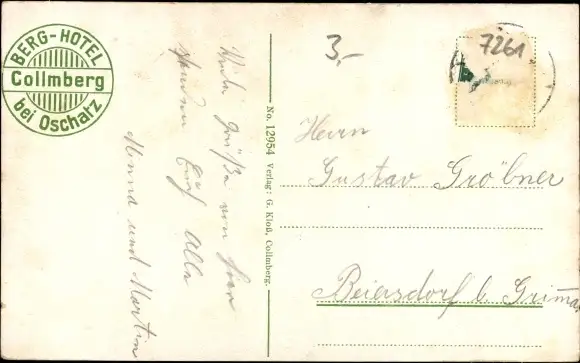 BERG-HOTEL
Collmberg
bei Oscharz
3,-
7261
Viele Grüße von hier
senden Euch Alle
Minna und Martin
No. 12954 Verlag: G. Kloß, Collmberg.
Herrn
Gustav Gröbner
Beiersdorf b. Grimma